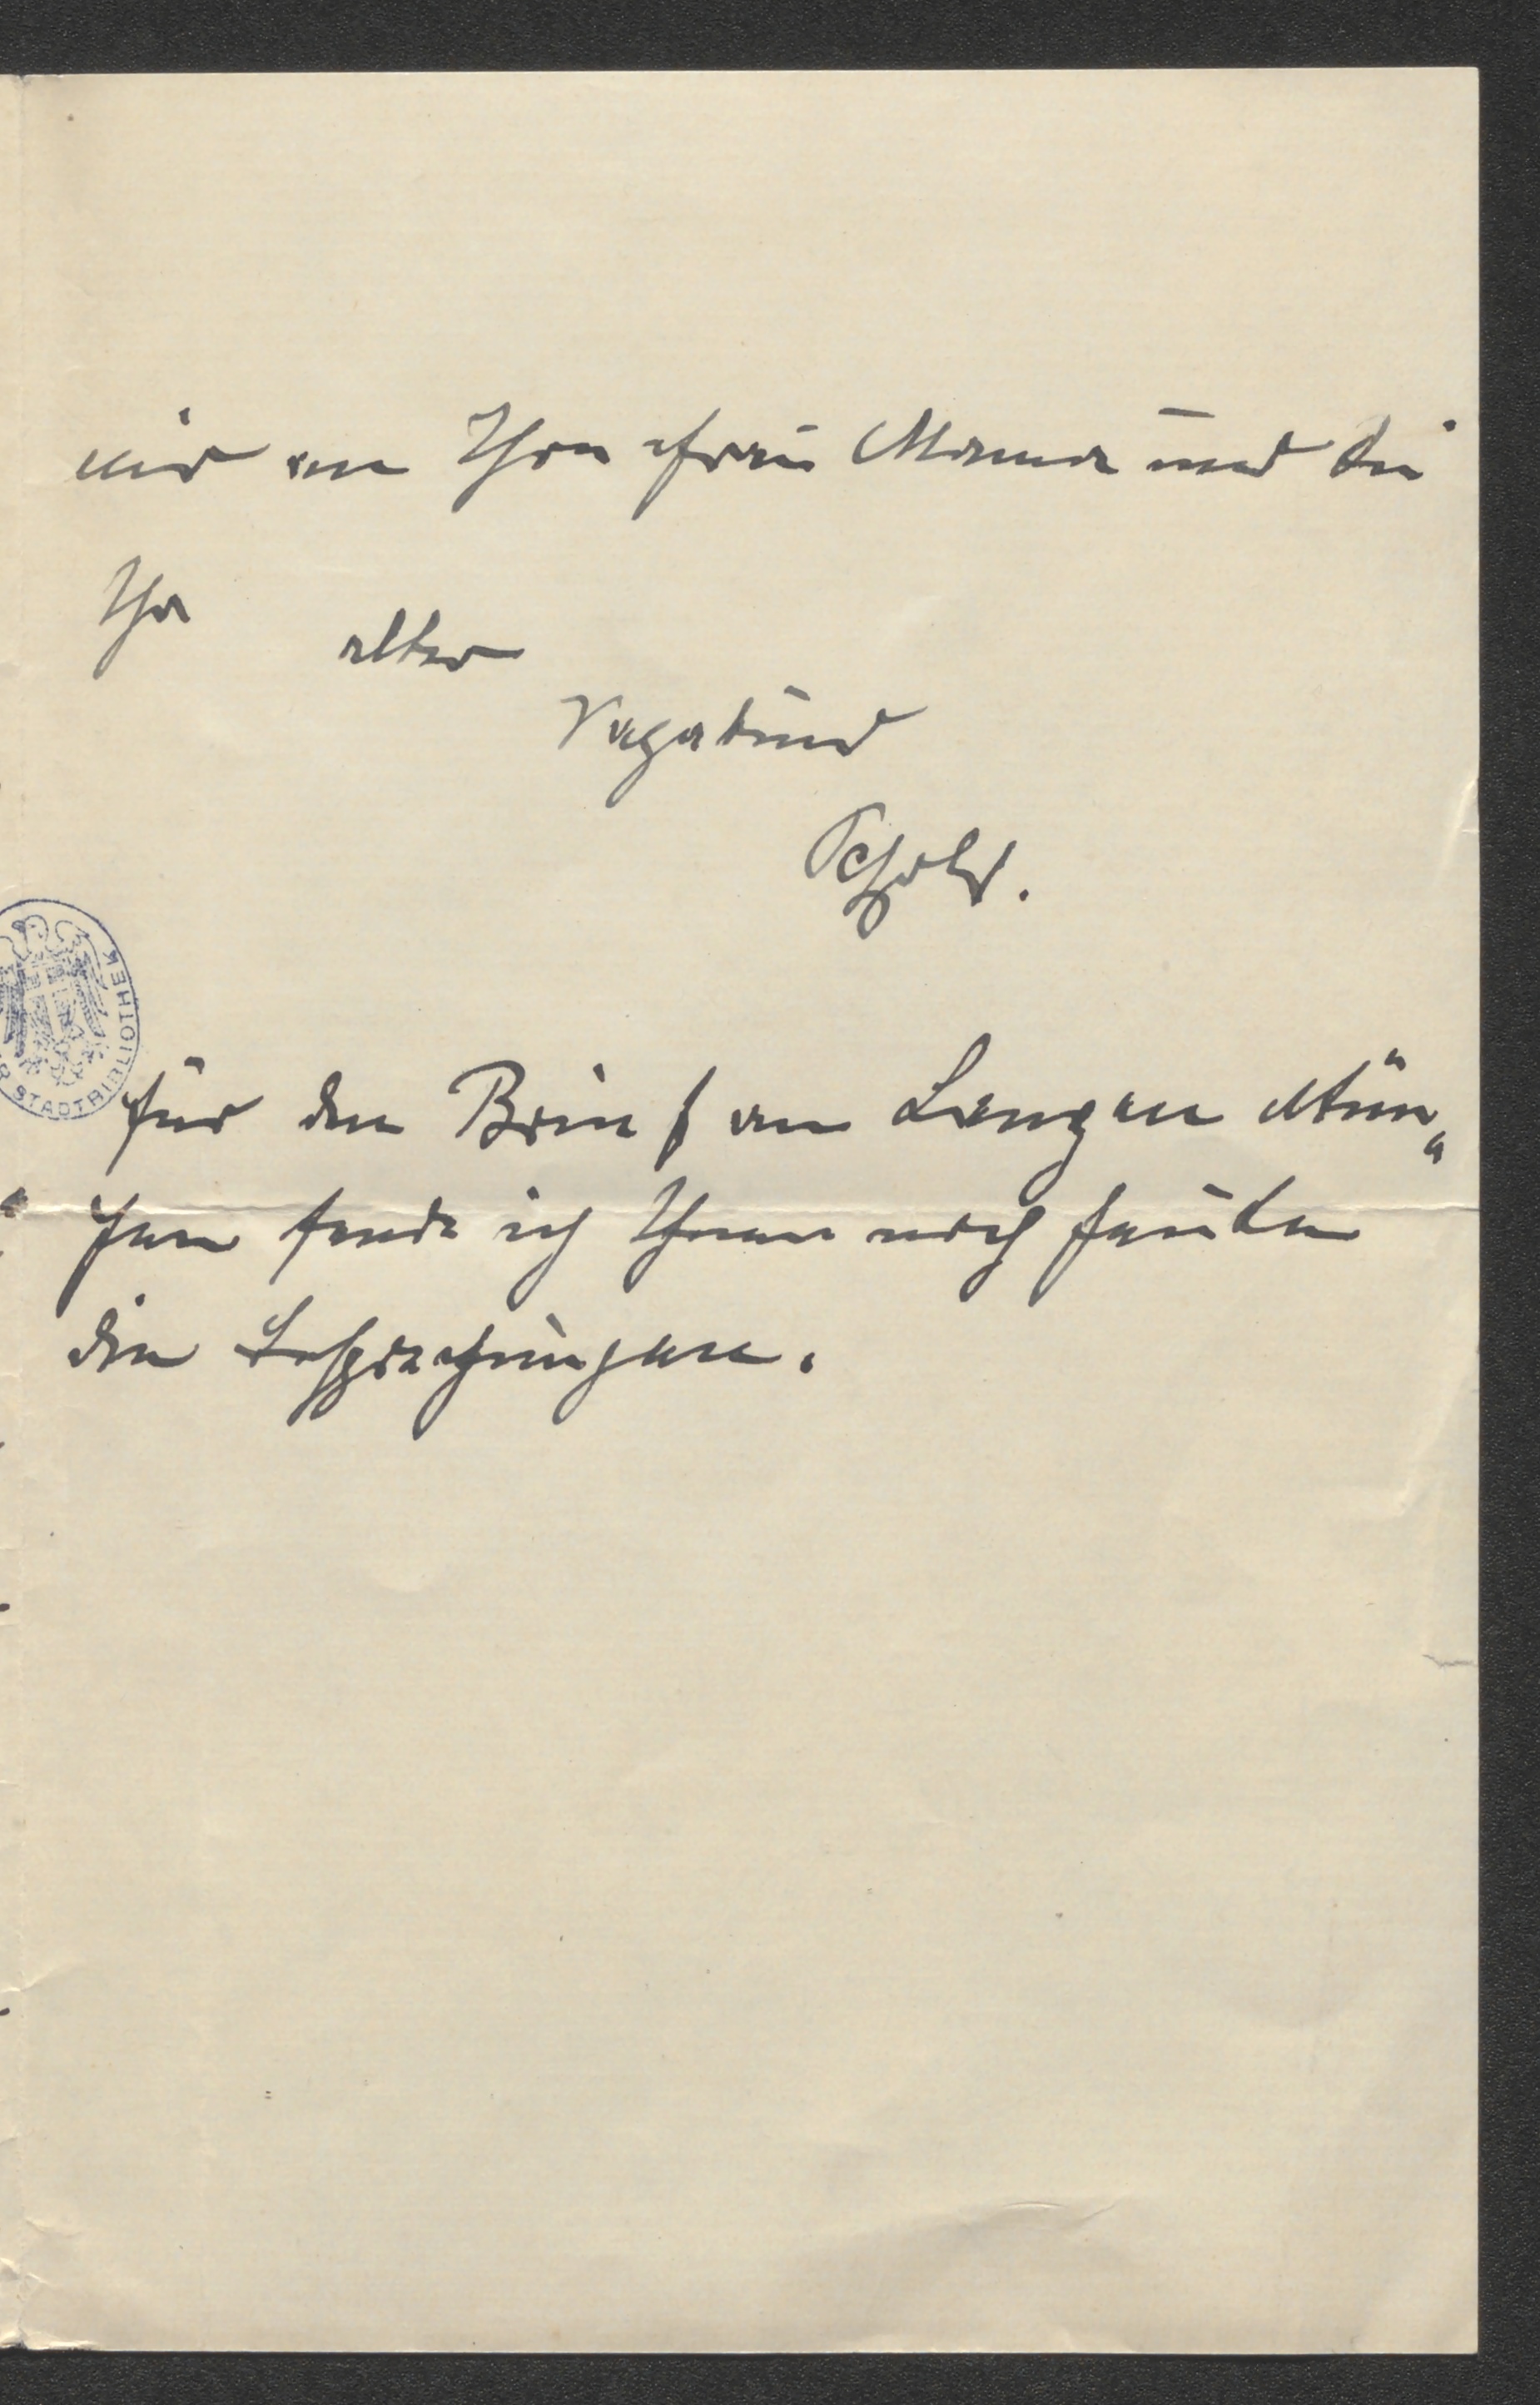 und an Ihre Frau Mama und Sie
Ihr
alter
Vagabund
Scholz.
für den Brief an Langen Mün„
chen sende ich Ihnen noch heute
die Besprechungen.
STADTBIBLIOTHEK